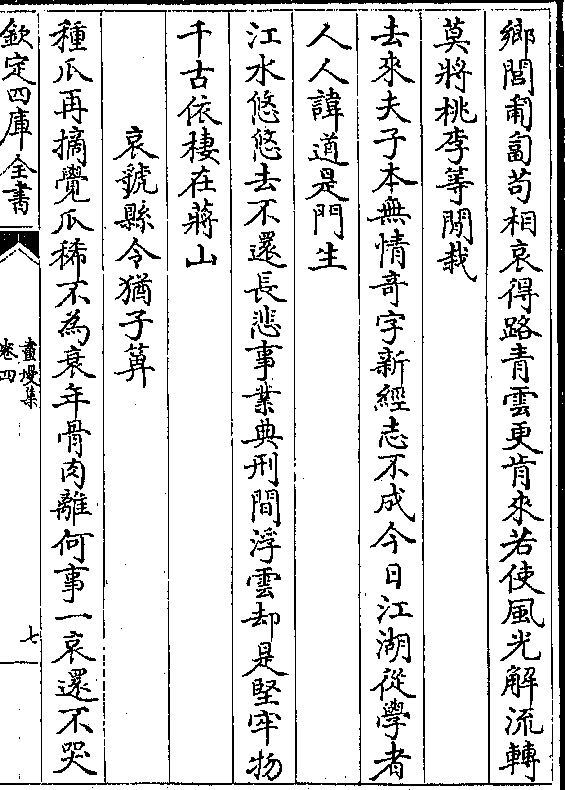 鄉閭匍匐苟相哀得路青雲更肯來若使風光解流轉
莫將桃李等閒栽
去來夫子本無情奇字新經志不成今日江湖從學者
人人諱道是門生
江水悠悠去不還長悲事業典刑間浮雲却是堅牢物
千古依棲在蔣山
哀虢縣令猶子箅
種瓜再摘覺瓜稀不為衰年骨肉離何事一哀還不哭
欽定四庫全書
畫墁集
卷四
七